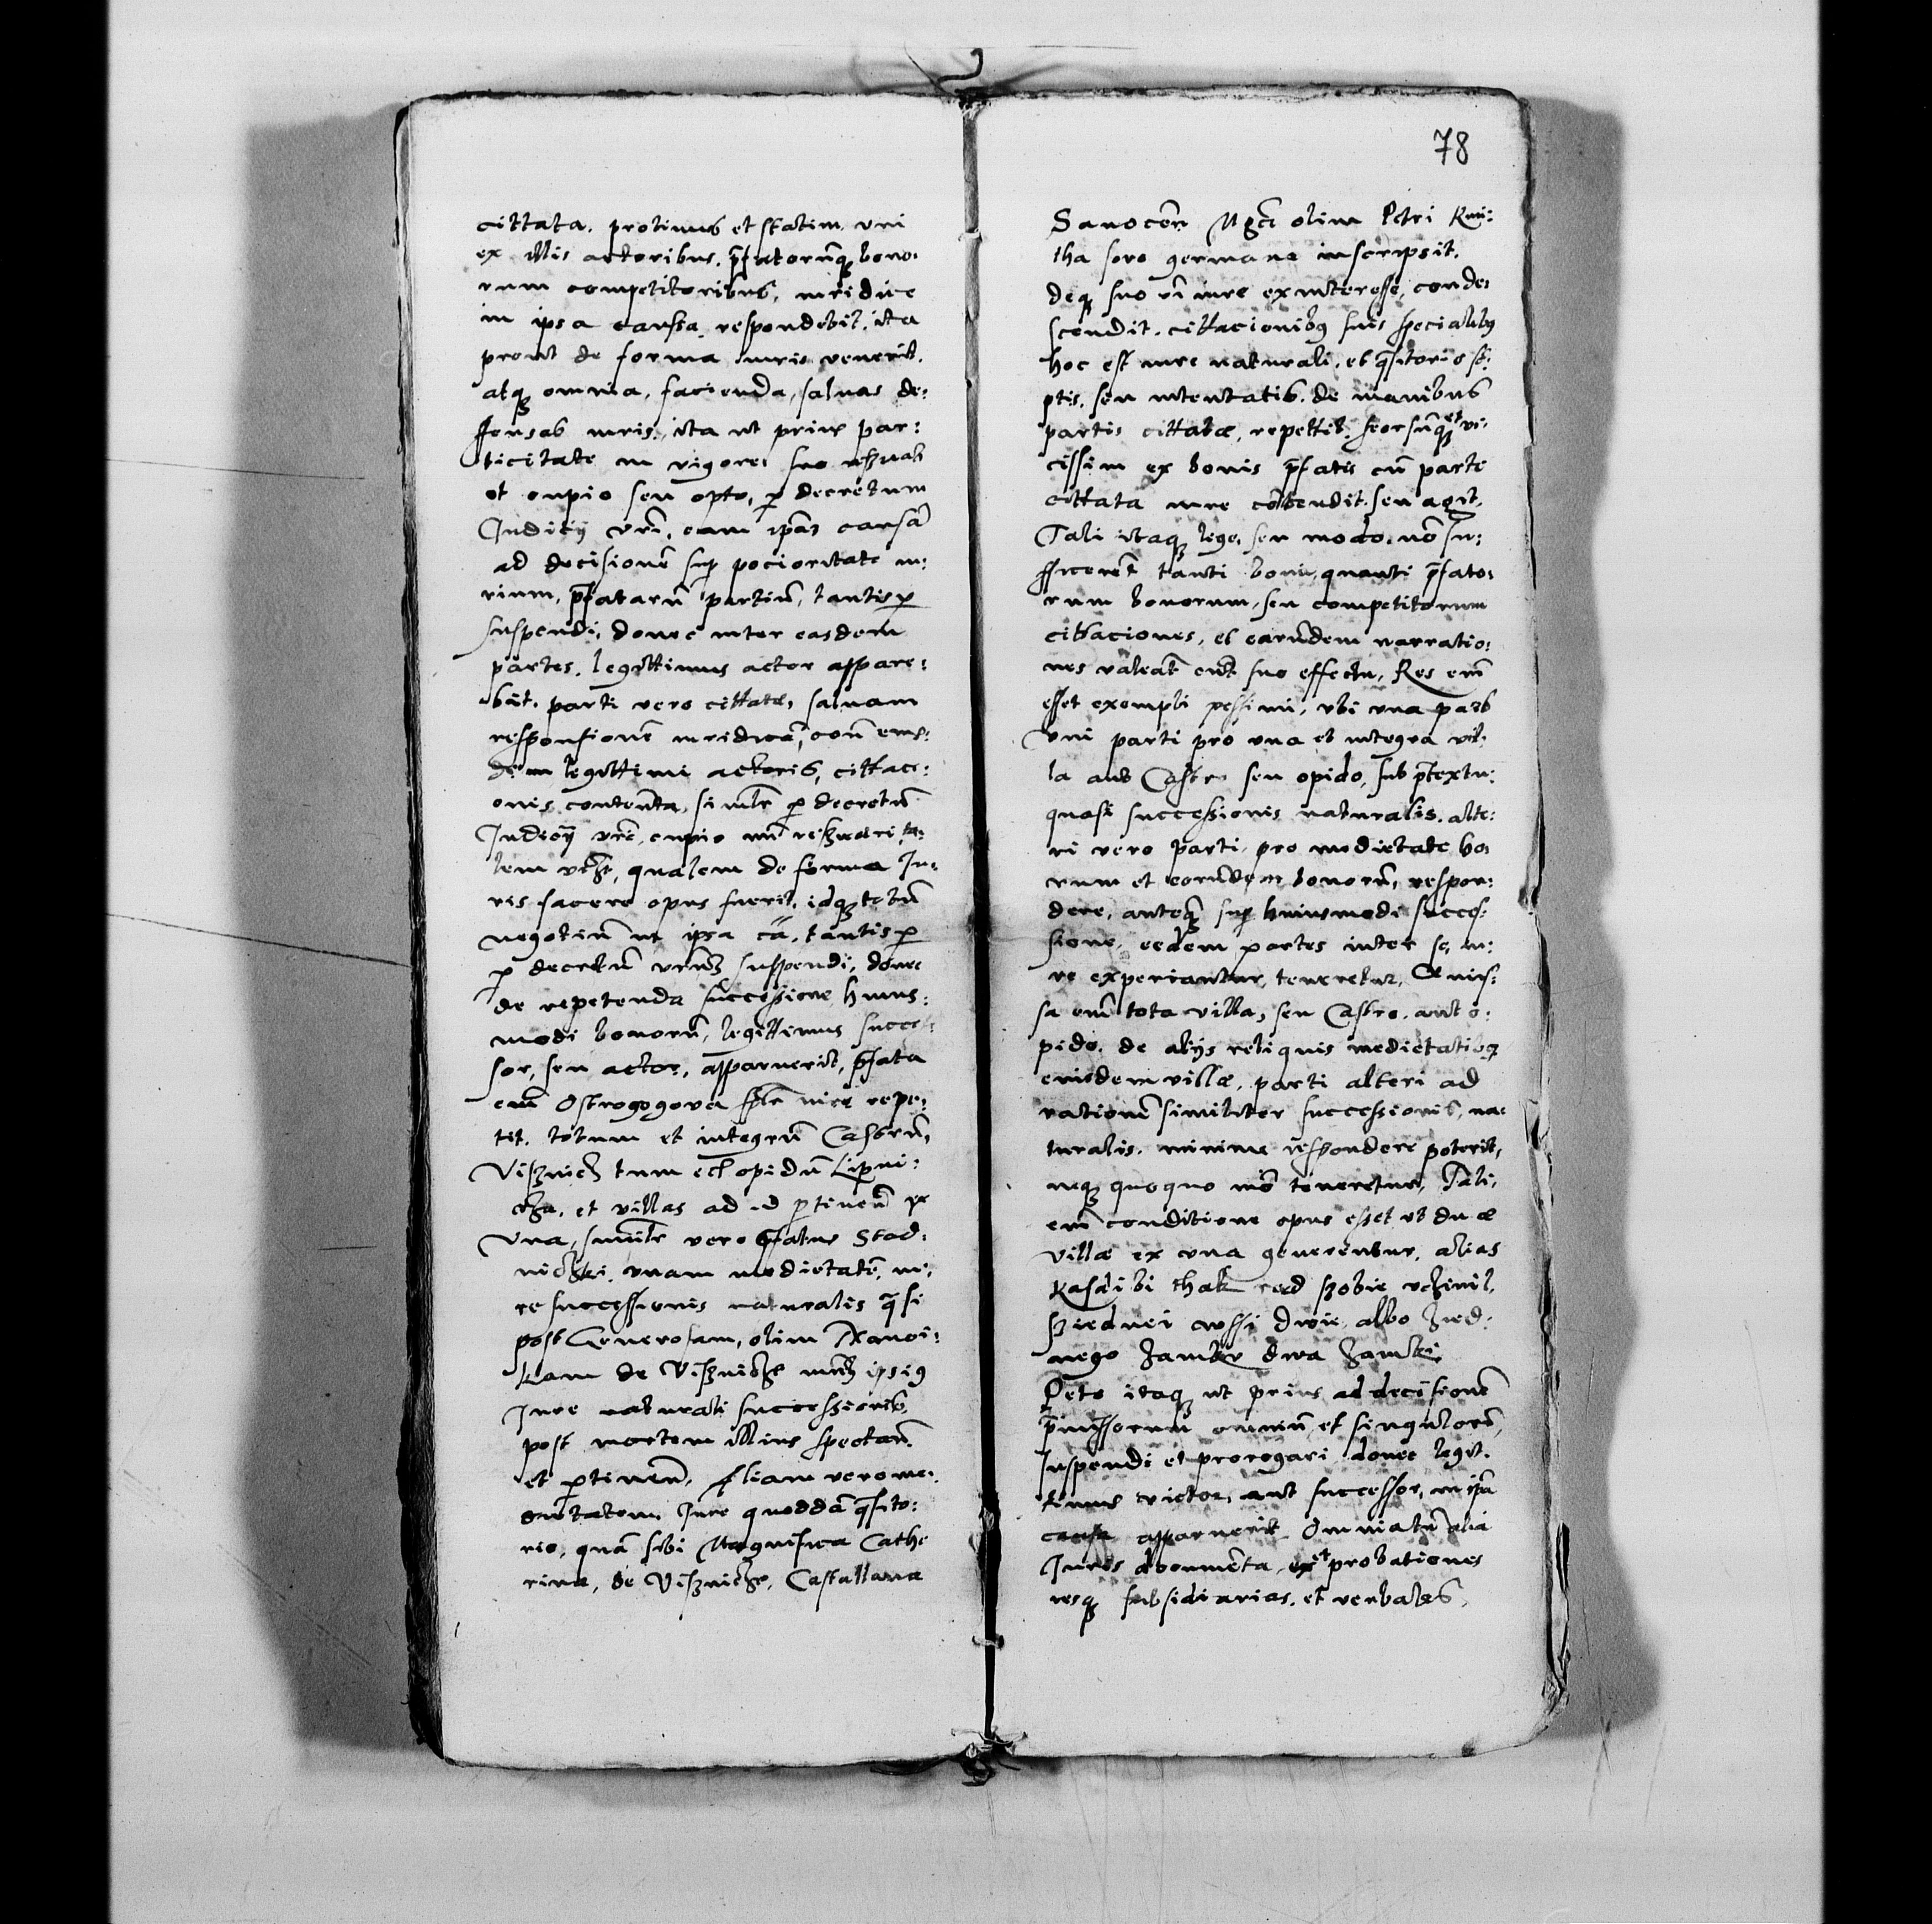 cittata. protinus et statim uni
ex illis actoribus. p̄fatorūq bono:
rum competitoribus, iuridice
in ipsa caussa respondebit. ita
prout de forma iuris venerit.
atq omnia, facienda, saluas de:
ffensas iuris, ita ut prius par:
ticitate in vigore suo
et cupio seu opto, p decretum
Judicij vr̄i, eam ip̄ā causā
ad decisionē sup pocioritate iu:
rium, p̄fatarū partiū, tantisp
suspendi, donec inter easdem
partes. legittimus actor appare:
bit. parti vero cittatæ, saluam
responsionē iuridicā, con eius:
dem legittimi actoris, cittaci:
onis contenta, simlr p decretū
Judicij vr̄i, cupio mī reservari ta:
lem, qualem de forma Ju:
ris facere opus fuerit, idq totū
negotiū in ipsa cā, tantisp
p decretū vrūm suspendi, donec
de repetenda successione huius:
modi bonorū, legittimus succes:
sor, seu actor, apparuerit, p̄fata
em̄ Ostrogogova iure repe:
tit. totum et integrū Castrū,
Viśznich tum opidū Lipni:
cza, et villas ad id ptinen̄ ex
Vna, simlr vero p̄fatus Stad:
niczki. vnam medietatē, iu:
re successionis naturalis q̄si
post Generosam, olim
kam de Viśznicze ipsiq
Jure naturali successionis,
post mortem illius spectan̄
et ptinen̄. Aliam vero me:
dietatem Jure quoddā q̄sito:
rio, quā sibi Magnifica Cathe
rina, de Viśznicze, Castallana
78
Sanocen̄ Mgci olim Petri Kmi:
tha soro germana inscripsit.
deq suo iure ex interesse, conde:
scendit. cittacionibq suis specialibq
hoc est iure naturali. et q̄sitorio sc̄:
ptis. seu intentatis. de manibus
partis cittatæ, repettit. seorsūq et vi:
cissim ex bonis p̄fatis cū parte
cittata iure cōtendit. seu agit.
Tali itaq lege, seu modo. nō su:
fficerēt tanti bona, quanti p̄fato:
rum bonorum, seu competitorum
cittaciones, et earūdem narratio:
nes valeāt suo effectu, Res em̄
esset exempli pessimi, vbi vna pars
vni parti pro vna et integra vil:
la aut Castro seu opido, sub p̄textu:
quasi successionis naturalis. alte:
ri vero parti pro medietate ho:
rum et eorūdem bonorū, respon:
dere, anteq̄ sup huiusmodi succes:
sione, eedem partes inter se, iu:
re experiantur, teneretur,
sa em̄ tota villa, seu Castro. aut o:
pido. de alijs reliquis medietatibq
eiusdem villæ. parti alteri ad
rationē similiter successionis, na:
turalis. minime respondere poterit,
neq quoquo mō teneretur, Tali,
em̄ conditione opus esset, ut duæ
villæ ex vna generentur, alias
Kasdi bi thak rad szobie vczinil,
sziednei wssi dwie, albo Jied:
nego Zamku dwa Zamki.
Peto itaq ut prius ad decisionē
p̄missorum omniū et singulorū,
suspendi et prorogari donec legit:
timus victor, aut successor, in ip̄a
causa apparuerit. Omnia tū alia
Juris documēta, et probationes
resq subsidiarias. et verbales,